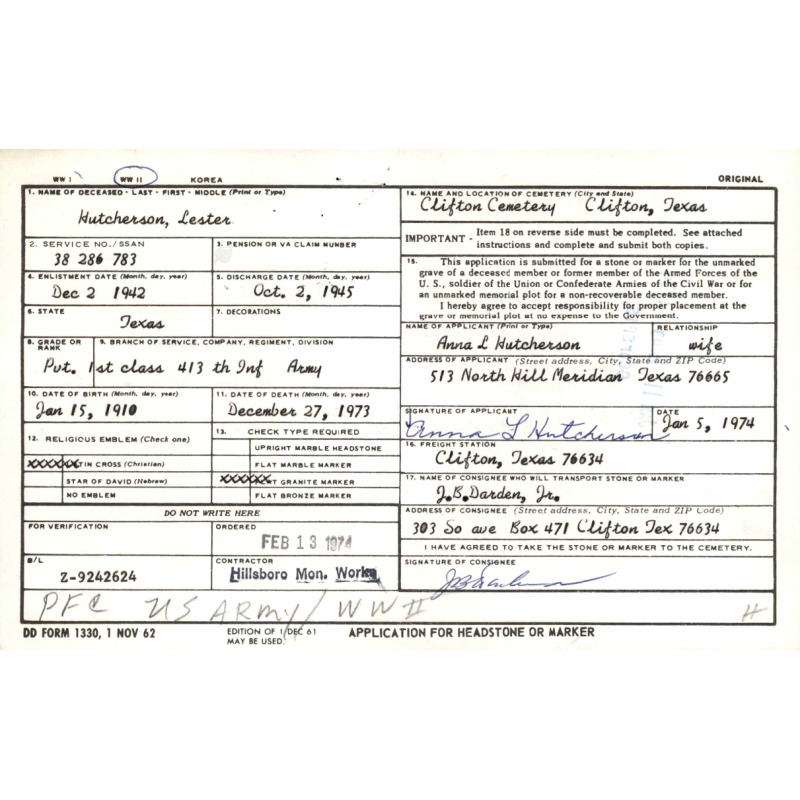 WW I WW II KOREA ORIGINAL
1. NAME OF DECEASED - LAST - FIRST - MIDDLE (Print or Type)
Hutcherson, Lester
2. SERVICE NO./SSAN
38 286 783
3. PENSION OR VA CLAIM NUMBER
4. ENLISTMENT DATE (Month, day, year)
Dec 2 1942
5. DISCHARGE DATE (Month, day, year)
Oct. 2, 1945
6. STATE
Texas
7. DECORATIONS
8. GRADE OR RANK
9. BRANCH OF SERVICE, COMPANY, REGIMENT, DIVISION
Pvt. 1st class 413 th Inf Army
10. DATE OF BIRTH (Month, day, year)
Jan 15, 1910
11. DATE OF DEATH (Month, day, year)
December 27, 1973
12. RELIGIOUS EMBLEM (Check one)
XXXXXXTIN CROSS (Christian)
STAR OF DAVID (Hebrew)
NO EMBLEM
13. CHECK TYPE REQUIRED
UPRIGHT MARBLE HEADSTONE
FLAT MARBLE MARKER
XXXXXX GRANITE MARKER
FLAT BRONZE MARKER
DO NOT WRITE HERE
FOR VERIFICATION
ORDERED
FEB 13 1974
B/L
Z-9242624
CONTRACTOR
Hillsboro Mon. Works
14. NAME AND LOCATION OF CEMETERY (City and State)
Clifton Cemetery Clifton, Texas
IMPORTANT - Item 18 on reverse side must be completed. See attached
instructions and complete and submit both copies.
15. This application is submitted for a stone or marker for the unmarked
grave of a deceased member or former member of the Armed Forces of the
U. S., soldier of the Union or Confederate Armies of the Civil War or for
an unmarked memorial plot for a non-recoverable deceased member.
I hereby agree to accept responsibility for proper placement at the
grave or memorial plot at no expense to the Government.
NAME OF APPLICANT (Print or Type)
Anna L Hutcherson
RELATIONSHIP
wife
ADDRESS OF APPLICANT (Street address, City, State and ZIP Code)
513 North Hill Meridian Texas 76665
SIGNATURE OF APPLICANT
Anna L Hutcherson
DATE
Jan 5, 1974
16. FREIGHT STATION
Clifton, Texas 76634
17. NAME OF CONSIGNEE WHO WILL TRANSPORT STONE OR MARKER
J.B. Darden, Jr.
ADDRESS OF CONSIGNEE (Street address, City, State and ZIP Code)
303 So ave Box 471 Clifton Tex 76634
I HAVE AGREED TO TAKE THE STONE OR MARKER TO THE CEMETERY.
SIGNATURE OF CONSIGNEE
PFC US ARMY/ WW II H
DD FORM 1330, 1 NOV 62
EDITION OF 1 DEC 61
MAY BE USED.
APPLICATION FOR HEADSTONE OR MARKER